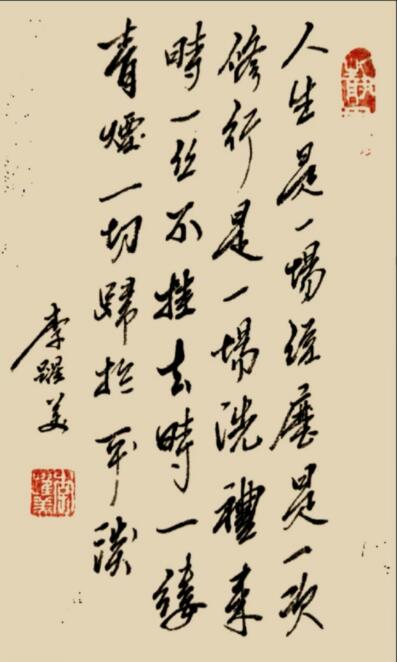 人生是一場經歷是一次
修行是一場洗禮來
時一丝不掛去時一缕
青煙一切歸於平淡
李躍美